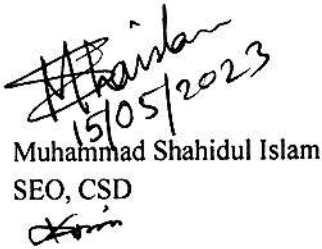 15/05/2023
Muhammad Shahidul Islam
SEO, CSD